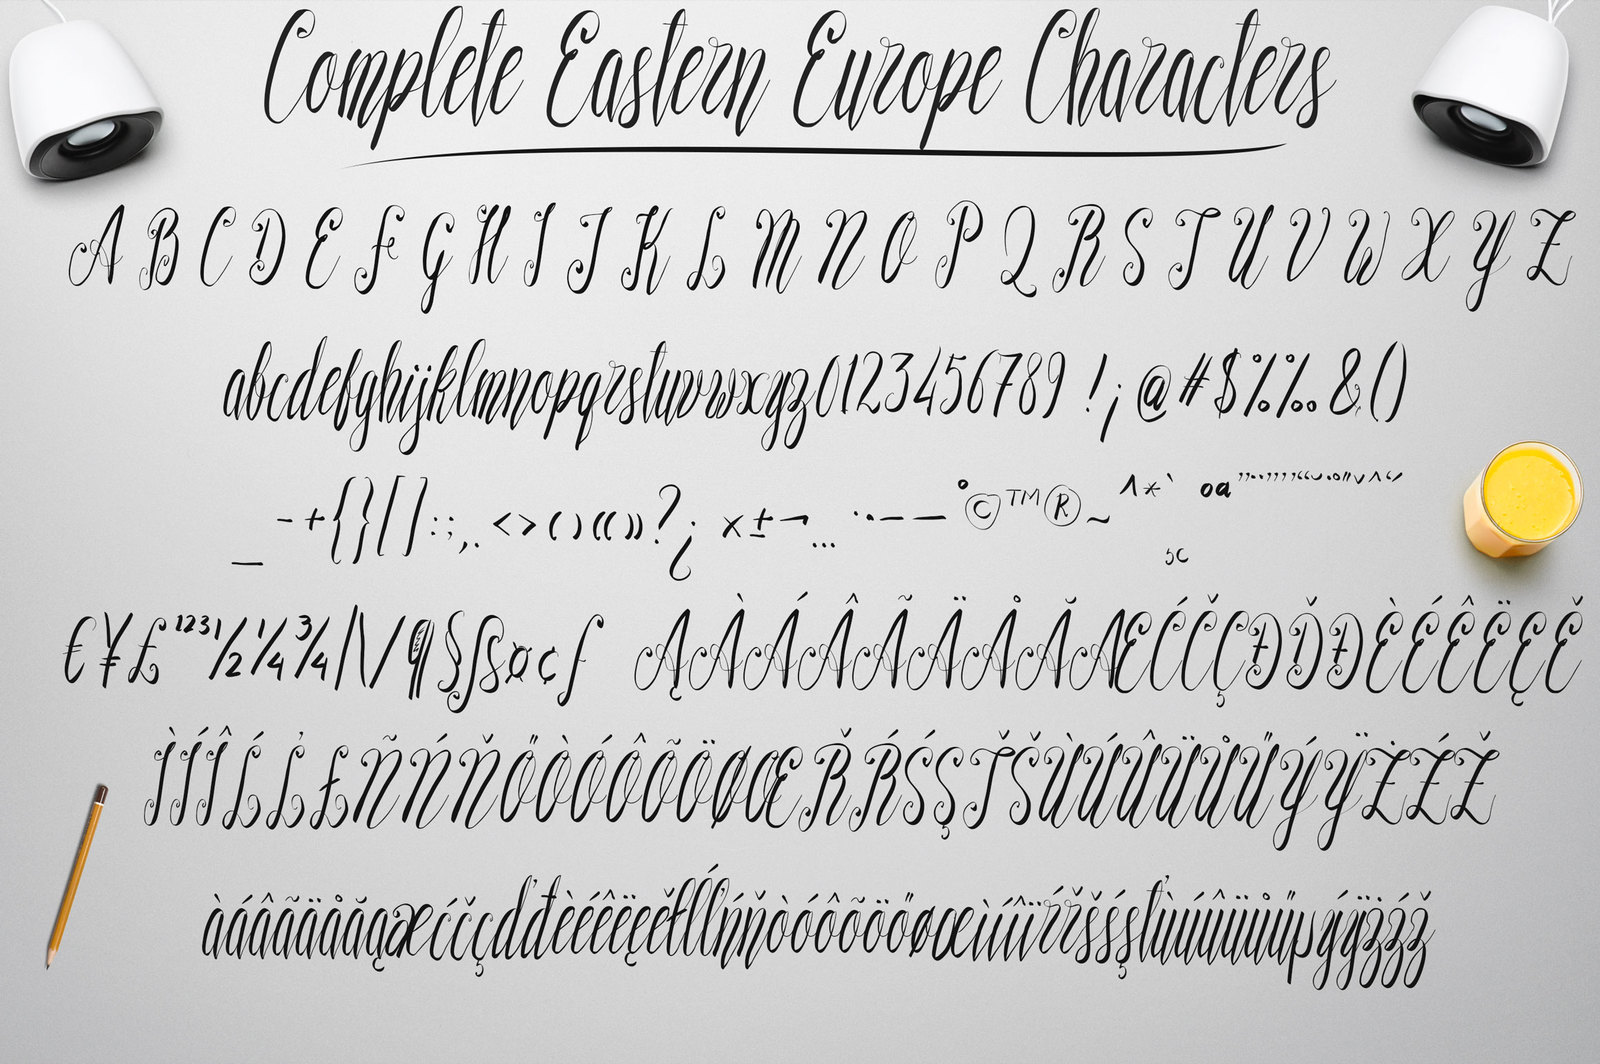 Complete Eastern Europe Characters
A B C D E F G H I J K L M N O P Q R S T U V W X Y Z
abcdefghijklmnopqrstuvwxyz0123456789 !¡@#$%‰&()
_ -+{}[]:;,.<>‹›«»?¿ ×±¬… ·•–— °©™®~^*` ºª
€¥£¹²³½¼¾|\/¶§ß¤¢ƒ ĄÀÁÂÃÄÅĂÆĆČÇĐĎÐÈÉÊËĘĚ
ÌÍÎĹĽŁÑŃŇŐÒÓÔÕÖØŒŘŔŚŞŤŠÙÚÛÜŮŰÝŸŻŹŽ
àáâãäåăąæćčçďđèéêëęěłĺľńňòóôõöőøœìíîïŕřšśşťùúûüůűµýÿżźž